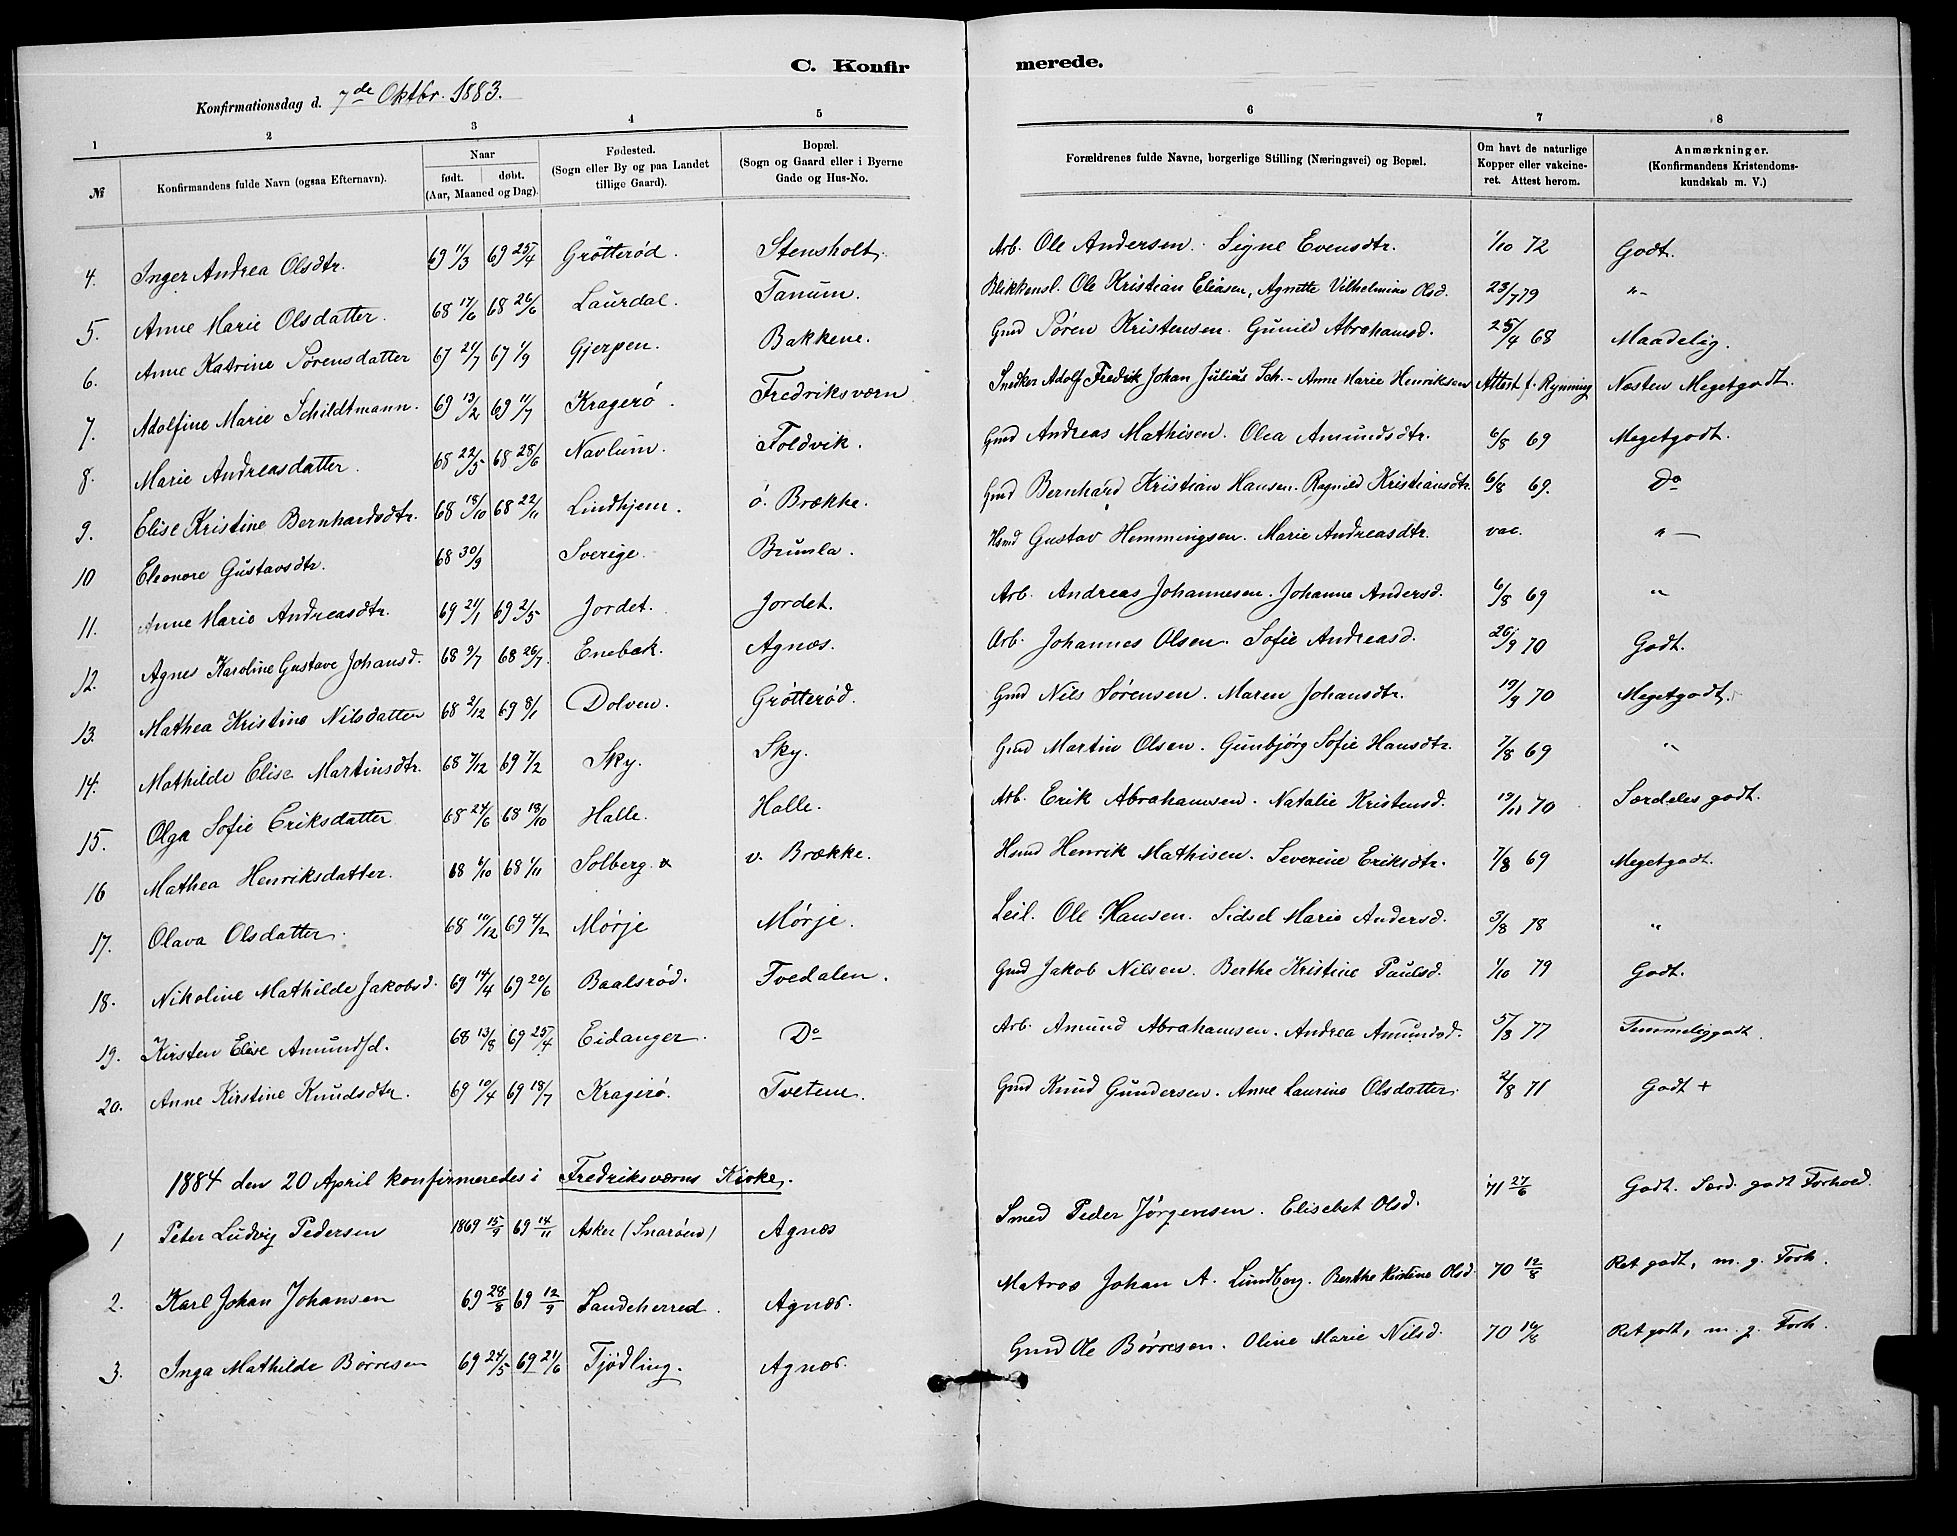 C. Konfirmerede.
Konfirmationsdag d. 7de Oktbr. 1883.
1 2 3 4 5 6 7 8
№ | Konfirmandens fulde Navn (ogsaa Efternavn). | Naar født. døbt. (Aar, Maaned og Dag). | Fødested. (Sogn eller By og paa Landet tillige Gaard). | Bopæl. (Sogn og Gaard eller i Byerne Gade og Hus-No. | Forældrenes fulde Navne, borgerlige Stilling (Næringsvei) og Bopæl. | Om havt de naturlige Kopper eller vakcineret. Attest herom. | Anmærkninger. (Konfirmandens Kristendomskundskab m. V.)
4. Inger Andrea Olsdtr. 69 11/3 69 25/4 Grötterød. Stensholt. Arb. Ole Andersen. Signe Evensdtr. 1/10 72 Godt.
5. Anne Marie Olsdatter. 68 17/6 68 26/6 Laurdal. Tanum. Blikkensl. Ole Kristian Eliasen, Agnette Vilhelmine Olsd. 23/7 79 "-
6. Anne Katrine Sørensdatter 67 21/7 67 1/9 Gjerpen. Bakkene. Gmd Søren Kristensen. Gunild Abrahamsd. 25/4 68 Maadelig.
7. Adolfine Marie Schildtmann. 69 13/2 69 11/7 Kragerö. Fredriksværn Snedker Adolf Fredik Johan Julius Sch. - Anne Marie Henriksen Attest f. Rynning Næsten Megetgodt.
8. Marie Andreasdatter. 68 22/5 68 28/6 Navlum. Foldvik. Gmd Andreas Mathisen. Olea Amundsdtr. 6/8 69 Megetgodt.
9. Elise Kristine Bernhardsdtr. 68 18/10 68 22/11 Lindhjem. ö. Brække. Gmd Bernhard Kristian Hansen. Ragnild Kristiansdtr 6/8 69. Do
10 Eleonore Gustavsdtr. 68 30/9 Sverige. Brunla. Hsmd Gustav Hemmingsen. Marie Andreasdtr. vac. " -
11. Anne Marie Andreasdtr. 69 21/1 69 2/5 Jordet. Jordet. Arb. Andreas Johannesen. Johanne Andersd. 6/8 69 "
12. Agnes Karoline Gustave Johansd. 68 9/7 68 26/7. Enebak. Agnæs. Arb. Johannes Olsen. Sofie Andreasd. 26/9 70 Godt.
13. Mathea Kristine Nilsdatter 68 2/12 69 8/1 Dolven. Grötterød. Gmd Nils Sørensen. Maren Johansdtr. 19/9 70 Megetgodt.
14. Mathilde Elise Martinsdtr. 68 7/12 69 7/2 Sky. Sky. Gmd Martin Olsen. Gunbjørg Sofie Hansdtr. 7/8 69 "
15. Olga Sofie Eriksdatter 68 24/6 68 18/10 Halle. Halle. Arb. Erik Abrahamsen. Natalie Kristensd. 19/11 70 Særdeles godt.
16 Mathea Henriksdatter. 68 6/10 68 1/11 Solberg. v. Brække. Hsmd Henrik Mathisen. Severine Eriksdtr. 7/8 69 Megetgodt.
17. Olava Olsdatter. 68 10/12 69 4/2 Mørje Mørje. Leil. Ole Hansen. Sidsel Marie Andersd. 3/8 78 "
18. Nikoline Mathilde Jakobsd. 69 14/4 69 20/6 Baalsrød. Tvedalen. Gmd Jakob Nilsen. Berthe Kristine Paulsd. 1/10 79 Godt.
19. Kirsten Elise Amundsd. 68 13/8 69 25/4 Eidanger. Do Arb. Amund Abrahamsen. Andrea Amundsd. 5/8 77 Temmeliggodt.
20. Anne Kirstine Knudsdtr. 69 10/4 69 18/7 Kragerö. Tvetene. Gmd Knud Gundersen. Anne Laurine Olsdatter. 2/8 71 Godt +
1884 den 20 April konfirmeredes i Fredriksværns Kirke.
1 Peter Ludvig Pedersen 1869 15/9 69 14/11 Asker (Snarøen) Agnæs Smed Peder Jørgensen. Elisebet Olsd. 71 27/6 Godt. Særd. godt Forhold.
2. Karl Johan Johansen 69 28/8 69 12/9 Sandeherred. Agnæs. Matros Johan A. Lundberg. Berthe Kristine Olsd. 70 12/8 Ret godt, m. g. Forh.
3. Inga Mathilde Børresen 69 24/5 69 21/6 Tjødling. Agnæs. Gmd Ole Børresen. Oline Marie Nilsd. 70 16/8 Ret godt, m. g. Forh.